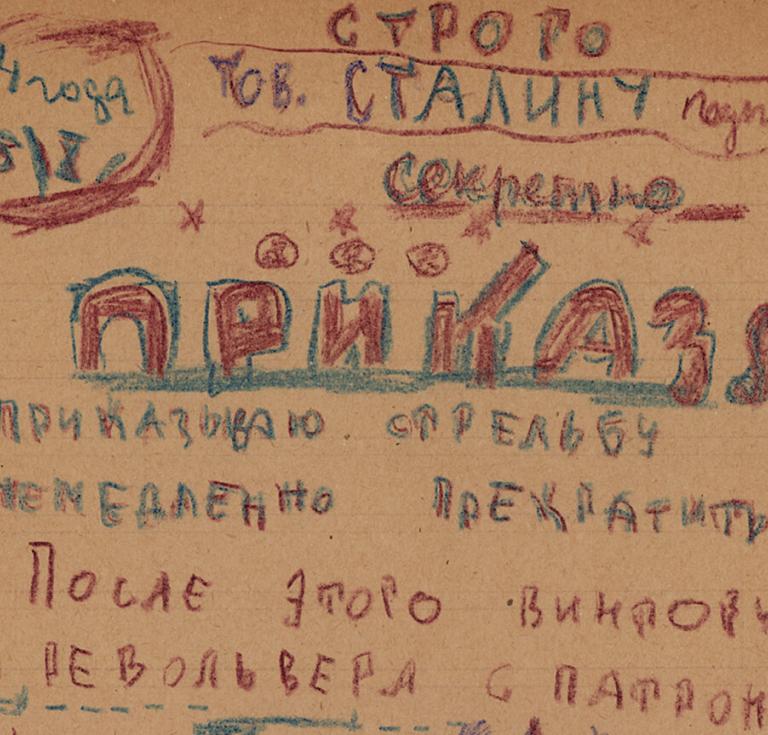 СТРОГО
4 года
Тов. СТАЛИНУ
Секретно
ПРИКАЗ
ПРИКАЗЫВАЮ СТРЕЛЬБУ
НЕМЕДЛЕННО ПРЕКРАТИТЬ
ПОСЛЕ ЭТОГО ВИНТОВ
РЕВОЛЬВЕРА С ПАТРОН